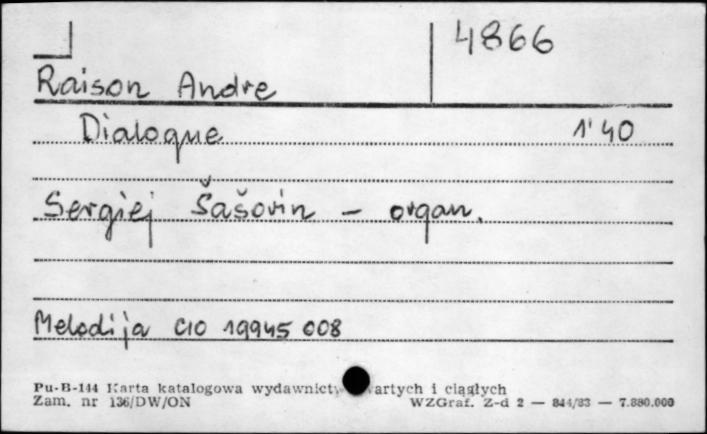 4866
Raison Andre
Dialogue 1'40
Sergiej Šašorin – organ.
Melodija C10 19945 008
Pu-B-144 Karta katalogowa wydawnictw i ciągłych
Zam. nr 136/DW/ON WZGraf. Z-d 2 — 844/83 — 7.880.000